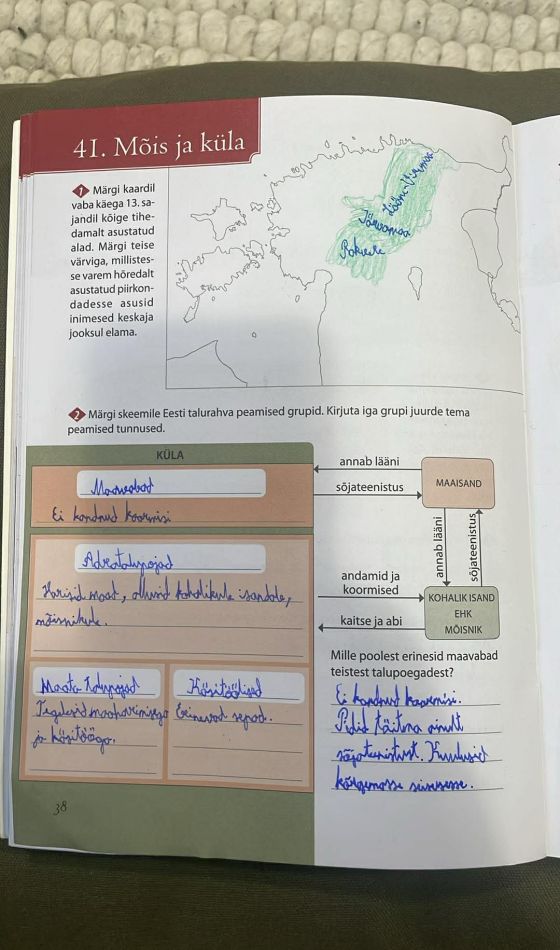 41. Mõis ja küla
1 Märgi kaardil
vaba käega 13. sa-
jandil kõige tihe-
damalt asustatud
alad. Märgi teise
värviga, millistes-
se varem hõredalt
asustatud piirkon-
dadesse asusid
inimesed keskaja
jooksul elama.
Lääne-Virumaa
Järvamaa
2 Märgi skeemile Eesti talurahva peamised grupid. Kirjuta iga grupi juurde tema
peamised tunnused.
KÜLA
Maavabad
Ei kandnud koormisi
annab lääni
sõjateenistus
MAAISAND
annab lääni
sõjateenistus
Adratalupojad
Harisid maad, allusid kohalikule isandale,
mõisnikule.
andamid ja
koormised
kaitse ja abi
KOHALIK ISAND
EHK
MÕISNIK
Maata talupojad
Tegelesid maaharimisega
ja käsitööga.
Käsitöölised
Erinevad sepad.
Mille poolest erinesid maavabad
teistest talupoegadest?
Ei kandnud koormisi.
Pidid täitma ainult
sõjateenistust. Kuulusid
kõrgemasse seisusesse.
38